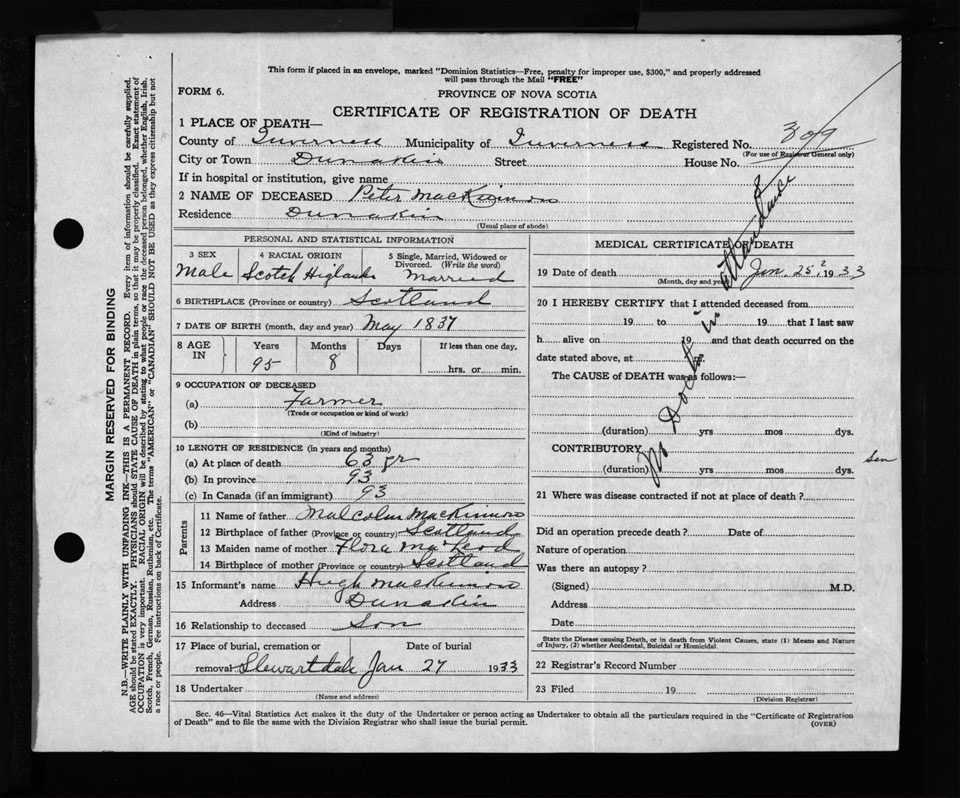 This form if placed in an envelope, marked "Dominion Statistics—Free, penalty for improper use, $300," and properly addressed
will pass through the Mail "FREE"
FORM 6.
PROVINCE OF NOVA SCOTIA
CERTIFICATE OF REGISTRATION OF DEATH
1 PLACE OF DEATH—
County of Inverness Municipality of Inverness Registered No. 309
(For use of Registrar General only)
City or Town Dunakin Street House No.
If in hospital or institution, give name
2 NAME OF DECEASED Peter MacKinnon
Residence Dunakin
(Usual place of abode)
PERSONAL AND STATISTICAL INFORMATION
3 SEX 4 RACIAL ORIGIN 5 Single, Married, Widowed or
Divorced. (Write the word)
Male Scotch Married
6 BIRTHPLACE (Province or country) Scotland
7 DATE OF BIRTH (month, day and year) May 1837
8 AGE IN Years Months Days If less than one day,
95 8 hrs. or min.
9 OCCUPATION OF DECEASED
(a) Farmer
(Trade or occupation or kind of work)
(b)
(Kind of industry)
10 LENGTH OF RESIDENCE (in years and months)
(a) At place of death 63 yr
(b) In province 93
(c) In Canada (if an immigrant) 93
Parents
11 Name of father Malcolm MacKinnon
12 Birthplace of father (Province or country) Scotland
13 Maiden name of mother Flora MacLeod
14 Birthplace of mother (Province or country) Scotland
15 Informant's name Hugh MacKinnon
Address Dunakin
16 Relationship to deceased Son
17 Place of burial, cremation or Date of burial
removal Stewartdale Jan 27 1933
18 Undertaker
(Name and address)
MEDICAL CERTIFICATE OF DEATH
19 Date of death Jan. 25, 1933
(Month, day and year)
20 I HEREBY CERTIFY that I attended deceased from
19 to 19 that I last saw
h alive on 19 and that death occurred on the
date stated above, at m.
The CAUSE of DEATH was as follows:—
(duration) yrs mos dys.
CONTRIBUTORY
(duration) yrs mos dys.
Sen
No Doctor in attendance
21 Where was disease contracted if not at place of death?
Did an operation precede death? Date of
Nature of operation
Was there an autopsy?
(Signed) M.D.
Address
Date
State the Disease causing Death, or in death from Violent Causes, state (1) Means and Nature
of Injury, (2) whether Accidental, Suicidal or Homicidal.
22 Registrar's Record Number
23 Filed 19
(Division Registrar)
Sec. 46—Vital Statistics Act makes it the duty of the Undertaker or person acting as Undertaker to obtain all the particulars required in the "Certificate of Registration
of Death" and to file the same with the Division Registrar who shall issue the burial permit.
(OVER)
MARGIN RESERVED FOR BINDING
N.B.—WRITE PLAINLY WITH UNFADING INK—THIS IS A PERMANENT RECORD. Every item of information should be carefully supplied.
AGE should be stated EXACTLY. PHYSICIANS should STATE CAUSE OF DEATH in plain terms, so that it may be properly classified. Exact statement of
OCCUPATION is very important. RACIAL ORIGIN will be described by stating to what people or race the deceased person belonged, whether English, Irish,
Scotch, French, German, Russian, Ruthenian, etc. The terms "AMERICAN" or "CANADIAN" SHOULD NOT BE USED as they express citizenship but not
a race or people. See instructions on back of Certificate.